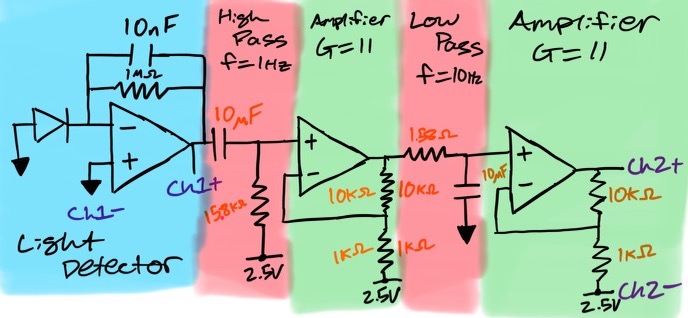 10nF
1MΩ
Ch1-
Ch1+
Light
Detector
High
Pass
f=1Hz
10μF
15.8kΩ
2.5V
Amplifier
G=11
10kΩ
10kΩ
1kΩ
1kΩ
2.5V
Low
Pass
f=10Hz
1.58Ω
10μF
Amplifier
G=11
Ch2+
10kΩ
1kΩ
2.5V
Ch2-